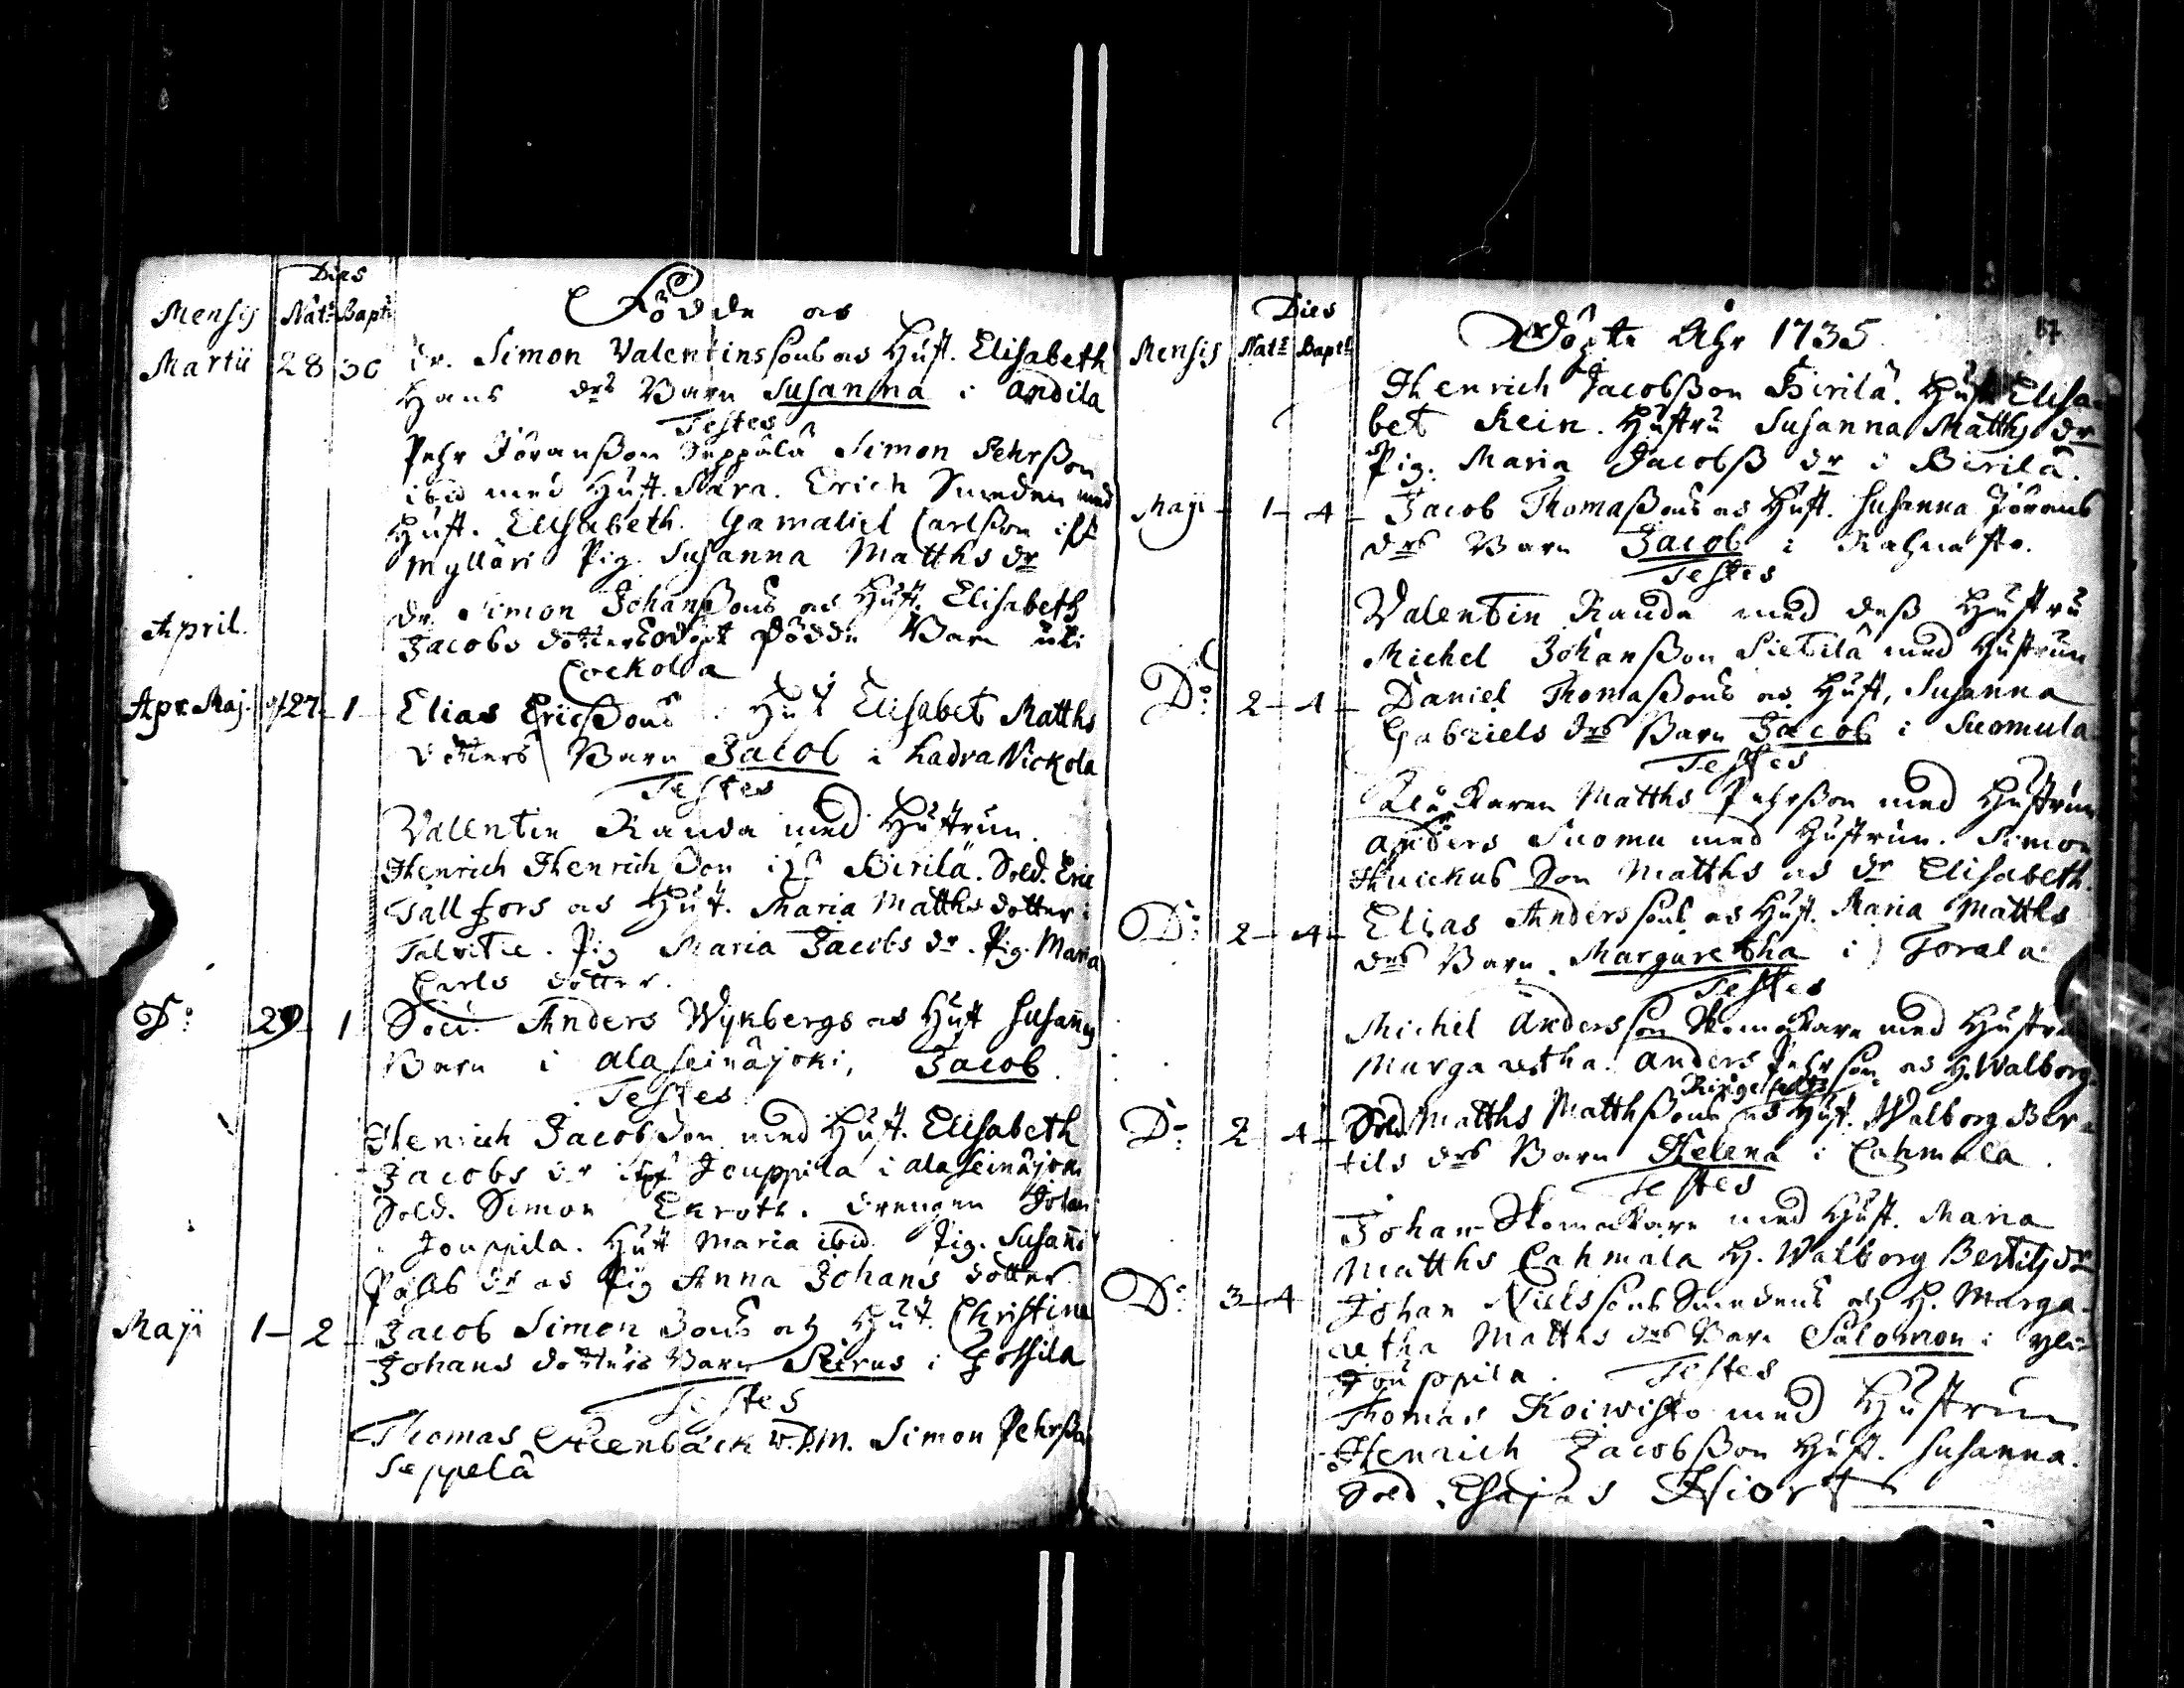 Dies
Mensis Nat: Bapt:
Födde as
Martii 28 30 dr. Simon Valentinssons as Hust. Elisabeth
Hans drs Barn Susanna i Andila
Testes
Pehr Jöranßon Seppälä Simon Pehrßon
ibid med Hust. Sara. Erich Smeden med
Hust. Elisabeth. Gamaliel Carlßon
Mylläri Pig. Susanna Matths dr
April. dr. Simon Johanßons as Hust. Elisabeth
Jacobs dotters födde Barn uti
Cockola
Apr. Maj. 27 1 Elias Ericßons Hust Elisabet Matths
dotters Barn Jacob i LadvaNickola
Testes
Valentin Randa med Hustrun.
Henrich Henrichson Birilä. Sold. Eric
Tallfors as Hust. Maria Matths dotter
Talvitie. Pig Maria Jacobs dr. Pig. Maria
Carls dotter.
Do: 29 1 Sold. Anders Wykbergs as Hust Susannas
Barn i Alaseinäjoki, Jacob.
Testes
Henrich Jacobson med Hust. Elisabeth
Jacobs dr Jouppila i Alaseinäjoki
Sold. Simon Ekroth. drengen Johan
Jouppila. Hust Maria ibid. Pig. Susanna
Påhls dr as Pig Anna Johans dotter
Maji 1 - 2 Jacob Simonsons as Hust. Christina
Johans dotters Barn Sirus i Jossila
Testes
Thomas Stenbäck V.D.M. Simon Pehrßon
Seppelä
Dies
Mensis Nat: Bapt:
Döpte Åhr 1735.
87
Henrich Jacobßon Birilä. Hust Elisa-
bet Rein. Hustru Susanna Matths dr
Pig. Maria Jacobß dr i Birilä.
Maji - 1 - 4 - Jacob Thomaßons as Hust. Susanna Jörans
drs Barn Jacob i
Testes
Valentin Randa med deß Hustru
Michel Johanßon Sietilä med Hustrun
Do: 2 - 4 - Daniel Thomaßons as Hust, Susanna
Gabriels drs Barn Jacob i Suomula
Testes
Matths Pehrßon med Hustrun
Anders Suomu med Hustrun. Simon
Son Matths as dr Elisabeth.
Do: 2 - 4 - Elias Anderssons as Hust. Maria Matths
drs Barn Margaretha i Torala
Testes
Michel Andersson Skomakare med Hustru
Margaretha. Anders Pehrson as H. Walborg
Do: 2 4 - Sold Matths Matthßons as Hust. Walborg Ber-
tils drs Barn Helena i Cahmala.
Testes
Johan Skomakare med Hust. Maria
Matths Cahmala H. Walborg Bertils dr
Do: 3 - 4 Johan Nielssons Smedens as H. Marga-
retha Matths drs Barn Salomon i Yli-
Jouppila. Testes
Thomas Koiwisto med Hustrun
Henrich Jacobßon Hust. Susanna.
Sold. Esajas Hiort